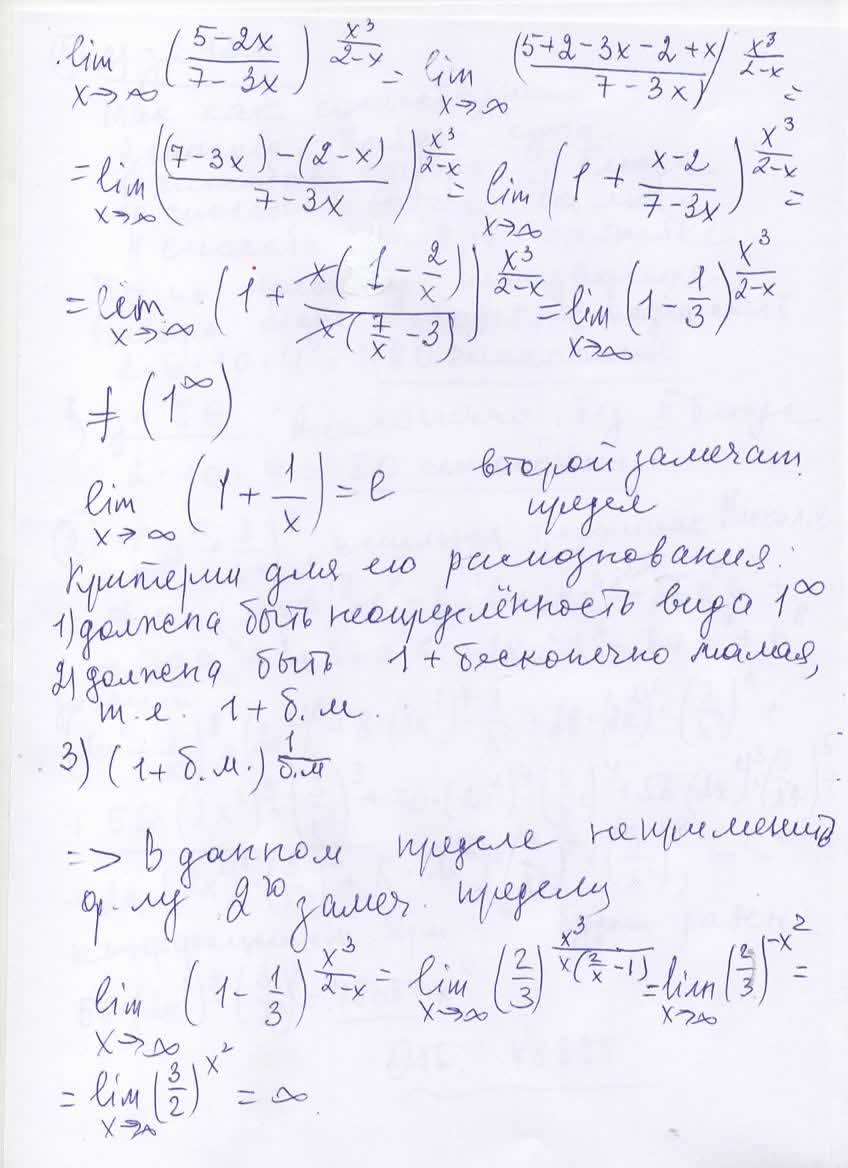 lim x→∞ ((5-2x)/(7-3x))^(x³/(2-x)) = lim x→∞ ((5+2-3x-2+x)/(7-3x))^(x³/(2-x)) =
= lim x→∞ (((7-3x)-(2-x))/(7-3x))^(x³/(2-x)) = lim x→∞ (1 + (x-2)/(7-3x))^(x³/(2-x)) =
= lim x→∞ (1 + (x(1 - 2/x))/(x(7/x - 3)))^(x³/(2-x)) = lim x→∞ (1 - 1/3)^(x³/(2-x))
≠ (1^∞)
lim x→∞ (1 + 1/x) = e второй замечат.
предел
Критерии для его распознования:
1) должна быть неопределённость вида 1^∞
2) должна быть 1 + бесконечно малая,
т.е. 1 + б.м.
3) (1 + б.м.)^(1/б.м)
=> В данном пределе неприменить
ф-лу 2го замеч. пределу
lim x→∞ (1 - 1/3)^(x³/(2-x)) = lim x→∞ (2/3)^(x³/(x(2/x - 1))) = lim x→∞ (2/3)^(-x²) =
= lim x→∞ (3/2)^(x²) = ∞